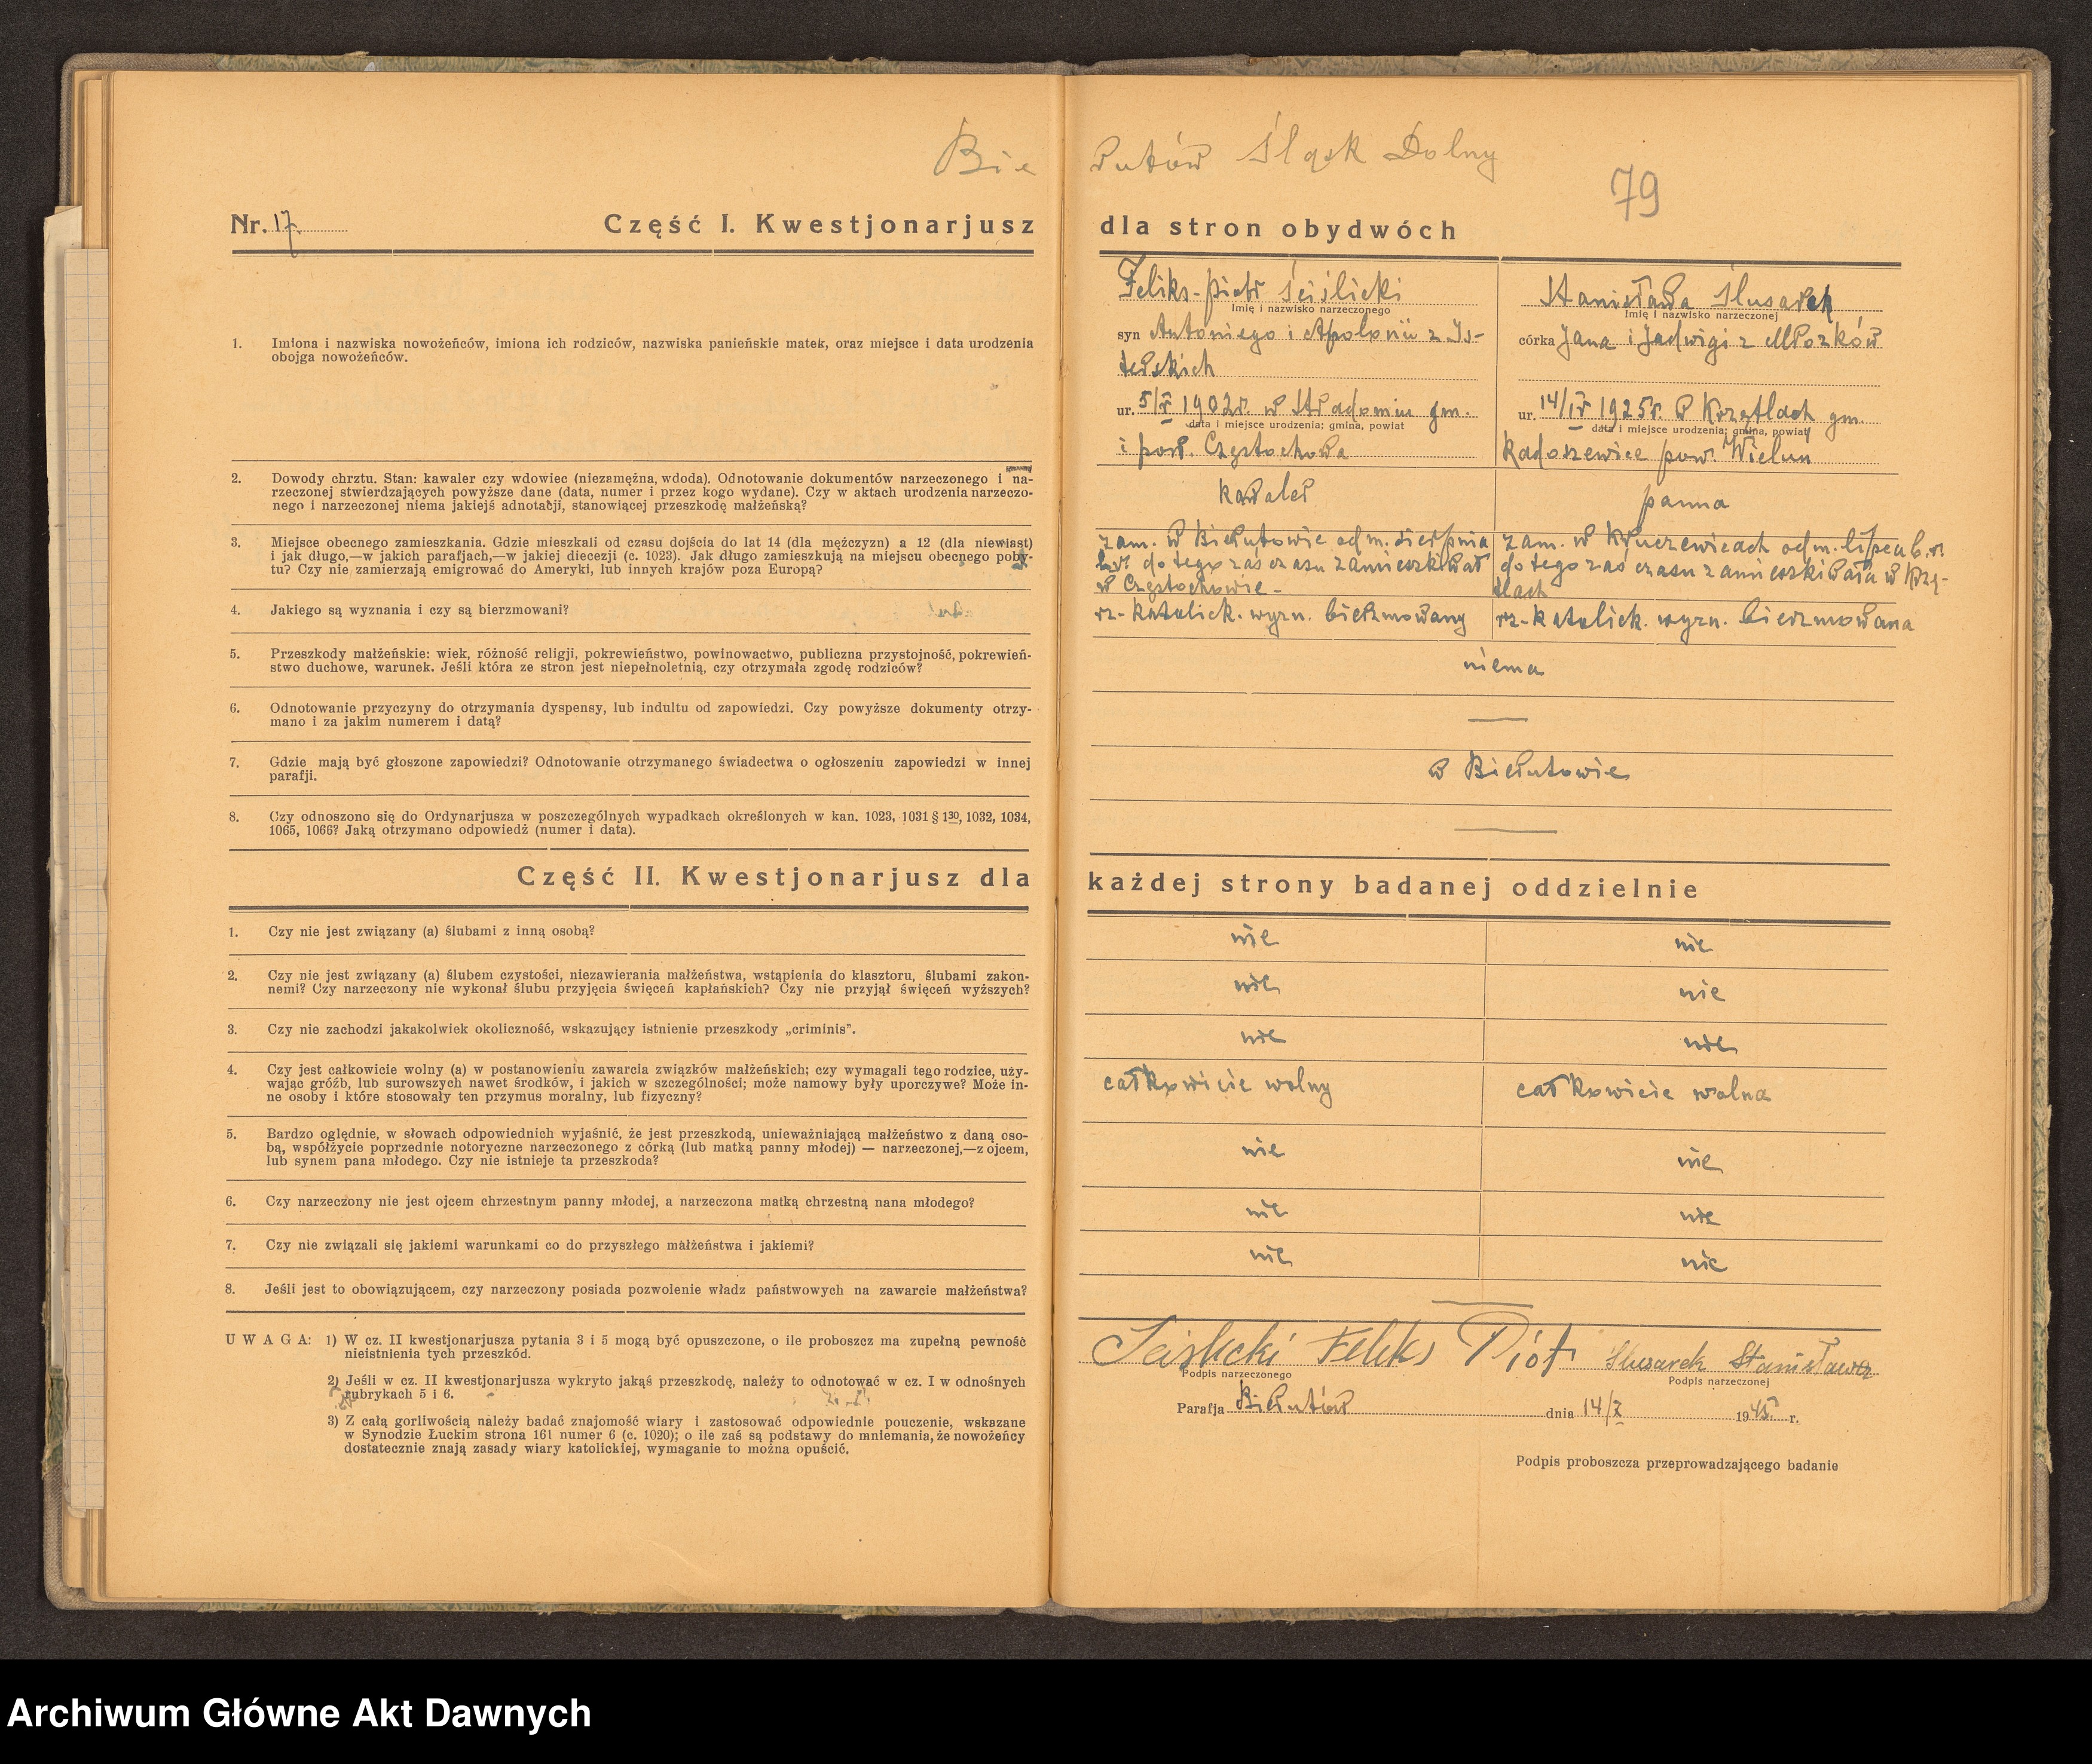 Bie
rutów Śląsk Dolny
79
Nr. 17.
Część I. Kwestjonarjusz
dla stron obydwóch
1. Imiona i nazwiska nowożeńców, imiona ich rodziców, nazwiska panieńskie matek, oraz miejsce i data urodzenia
obojga nowożeńców.
2. Dowody chrztu. Stan: kawaler czy wdowiec (niezamężna, wdoda). Odnotowanie dokumentów narzeczonego i na-
rzeczonej stwierdzających powyższe dane (data, numer i przez kogo wydane). Czy w aktach urodzenia narzeczo-
nego i narzeczonej niema jakiejś adnotacji, stanowiącej przeszkodę małżeńską?
3. Miejsce obecnego zamieszkania. Gdzie mieszkali od czasu dojścia do lat 14 (dla mężczyzn) a 12 (dla niewiast)
i jak długo,—w jakich parafjach,—w jakiej diecezji (c. 1023). Jak długo zamieszkują na miejscu obecnego poby-
tu? Czy nie zamierzają emigrować do Ameryki, lub innych krajów poza Europą?
4. Jakiego są wyznania i czy są bierzmowani?
5. Przeszkody małżeńskie: wiek, różność religji, pokrewieństwo, powinowactwo, publiczna przystojność, pokrewień-
stwo duchowe, warunek. Jeśli która ze stron jest niepełnoletnią, czy otrzymała zgodę rodziców?
6. Odnotowanie przyczyny do otrzymania dyspensy, lub indultu od zapowiedzi. Czy powyższe dokumenty otrzy-
mano i za jakim numerem i datą?
7. Gdzie mają być głoszone zapowiedzi? Odnotowanie otrzymanego świadectwa o ogłoszeniu zapowiedzi w innej
parafji.
8. Czy odnoszono się do Ordynarjusza w poszczególnych wypadkach określonych w kan. 1023, 1031 § 130, 1032, 1034,
1065, 1066? Jaką otrzymano odpowiedź (numer i data).
Feliks-Piotr Sciślicki
Imię i nazwisko narzeczonego
syn Antoniego i Apolonii z Is-
terskich
ur. 5/X 1902r. w Stradomiu gm.
data i miejsce urodzenia; gmina, powiat
i pow. Częstochowa
Stanisława Slusarek
Imię i nazwisko narzeczonej
córka Jana i Jadwigi z Mrozków
ur. 14/IV 1925r. w Krzętlach gm.
data i miejsce urodzenia; gmina, powiat
Radoszewice pow. Wieluń
kawaler
panna
zam. w Bierutowie od m. sierpnia
b.r. do tego zaś czasu zamieszkiwał
w Częstochowie -
zam. w Kruczewicach od m. lipca b.r.
do tego zaś czasu zamieszkiwała w Krzę-
tlach
rz-katolick. wyzn. bierzmowany
rz-katolick. wyzn. bierzmowana
niema
w Bierutowie
Część II. Kwestjonarjusz dla
każdej strony badanej oddzielnie
1. Czy nie jest związany (a) ślubami z inną osobą?
nie nie
2. Czy nie jest związany (a) ślubem czystości, niezawierania małżeństwa, wstąpienia do klasztoru, ślubami zakon-
nemi? Czy narzeczony nie wykonał ślubu przyjęcia święceń kapłańskich? Czy nie przyjął święceń wyższych?
nie nie
3. Czy nie zachodzi jakakolwiek okoliczność, wskazujący istnienie przeszkody „criminis”.
nie nie
4. Czy jest całkowicie wolny (a) w postanowieniu zawarcia związków małżeńskich; czy wymagali tego rodzice, uży-
wając gróźb, lub surowszych nawet środków, i jakich w szczególności; może namowy były uporczywe? Może in-
ne osoby i które stosowały ten przymus moralny, lub fizyczny?
całkowicie wolny całkowicie wolna
5. Bardzo oględnie, w słowach odpowiednich wyjaśnić, że jest przeszkodą, unieważniającą małżeństwo z daną oso-
bą, współżycie poprzednie notoryczne narzeczonego z córką (lub matką panny młodej) — narzeczonej,—z ojcem,
lub synem pana młodego. Czy nie istnieje ta przeszkoda?
nie nie
6. Czy narzeczony nie jest ojcem chrzestnym panny młodej, a narzeczona matką chrzestną nana młodego?
nie nie
7. Czy nie związali się jakiemi warunkami co do przyszłego małżeństwa i jakiemi?
nie nie
8. Jeśli jest to obowiązującem, czy narzeczony posiada pozwolenie władz państwowych na zawarcie małżeństwa?
UWAGA: 1) W cz. II kwestjonarjusza pytania 3 i 5 mogą być opuszczone, o ile proboszcz ma zupełną pewność
nieistnienia tych przeszkód.
2) Jeśli w cz. II kwestjonarjusza wykryto jakąś przeszkodę, należy to odnotować w cz. I w odnośnych
rubrykach 5 i 6.
3) Z całą gorliwością należy badać znajomość wiary i zastosować odpowiednie pouczenie, wskazane
w Synodzie Łuckim strona 161 numer 6 (c. 1020); o ile zaś są podstawy do mniemania, że nowożeńcy
dostatecznie znają zasady wiary katolickiej, wymaganie to można opuścić.
Scislicki Feliks Piotr Slusarek Stanisława
Podpis narzeczonego Podpis narzeczonej
Parafja Bierutów dnia 14/X 1945 r.
Podpis proboszcza przeprowadzającego badanie
Archiwum Główne Akt Dawnych